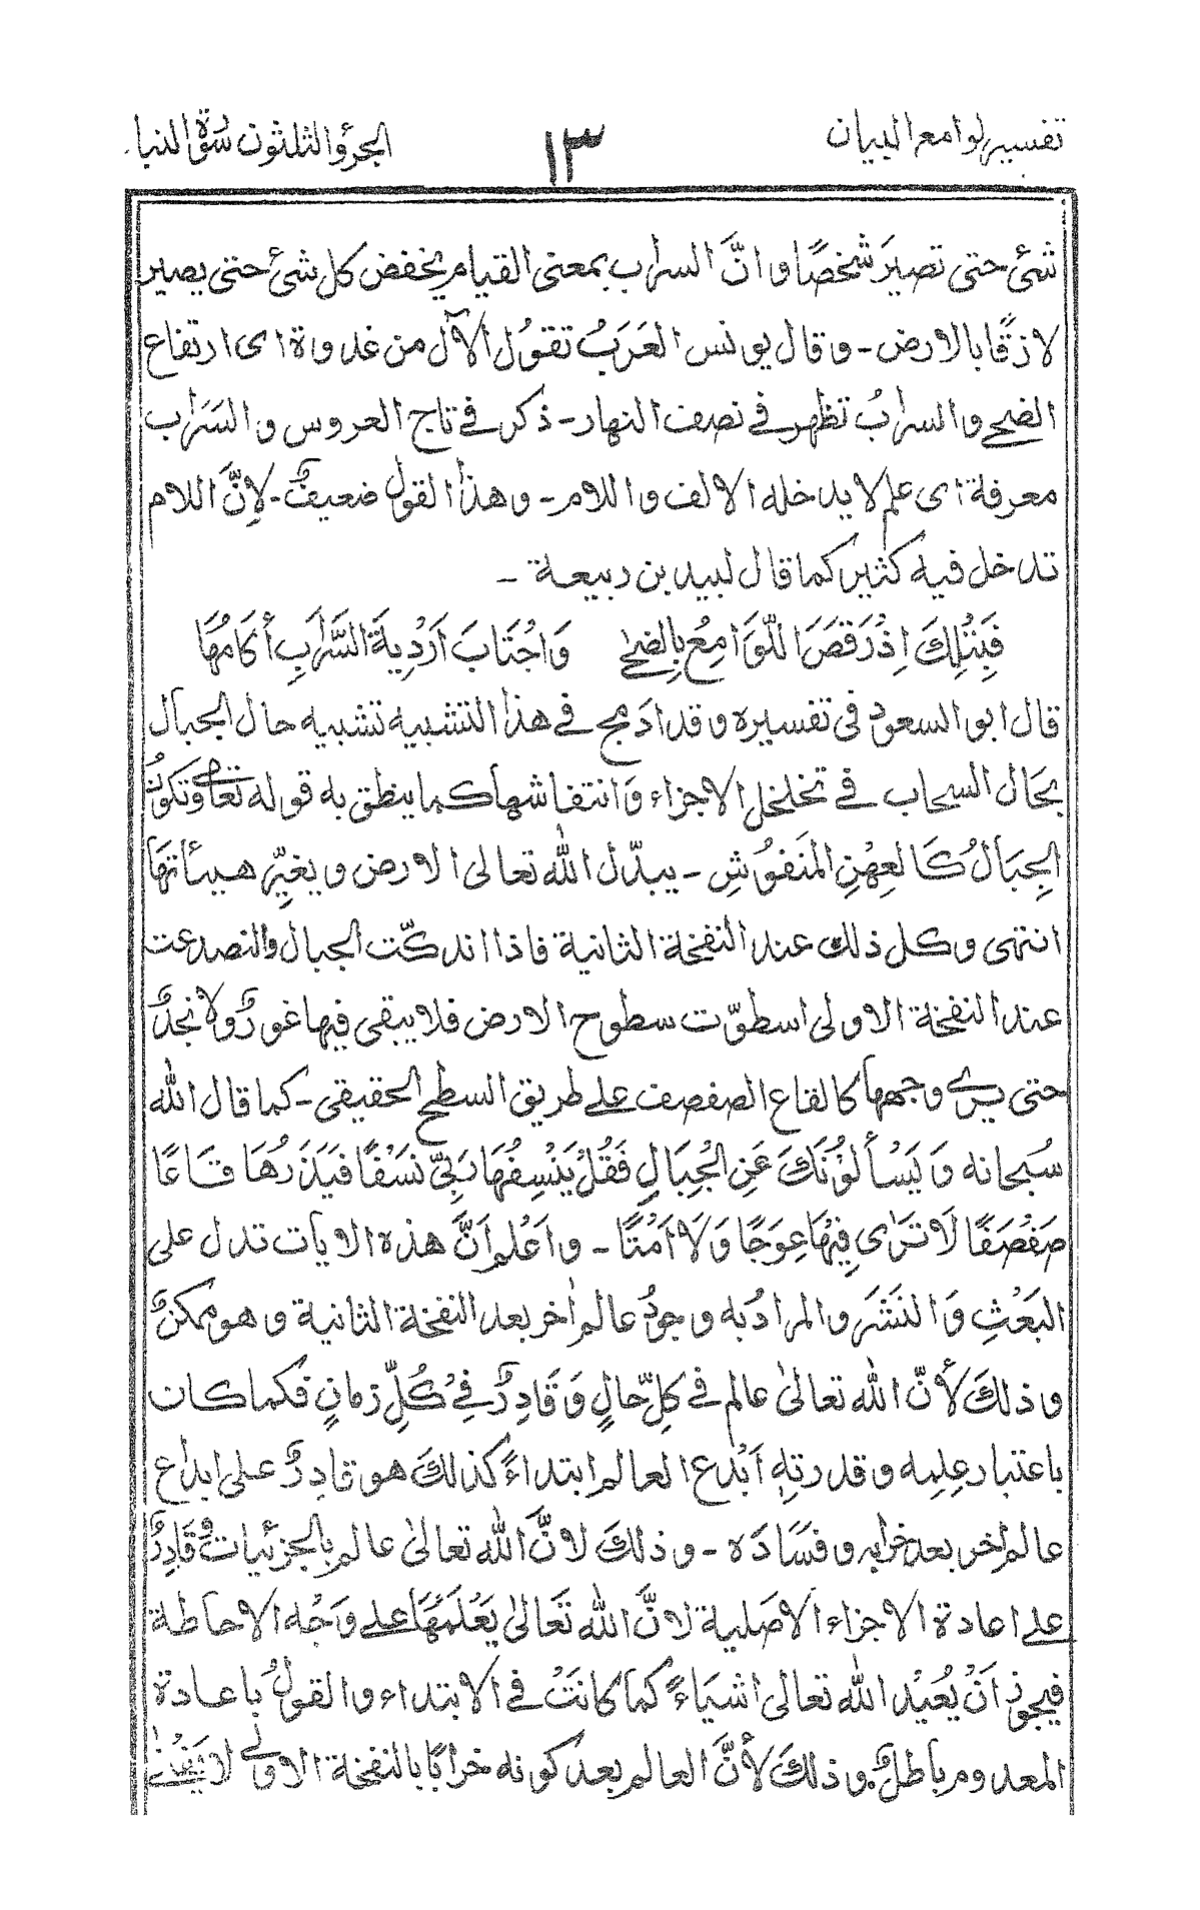 تفسير لوامع البيان ١٣ الجزؤ الثلثون سورة النبا
شئ حتى تصيرَ شخصًا و انَّ السراب بمعنى القيام يخفض كل شئ حتى يصير
لازقًا بالارض - و قال يونس العَرَبُ تقوُل الآل من غدوة اى ارتفاع
الضحے والسرابُ تظهر فے نصف النهار - ذكر فے تاج العروس و السَرَاب
معرفة اى علم لا يدخله الالف واللام - وهذا القول ضعيفٌ - لِانَّ اللام
تدخل فيه كثير كما قال لبيد بن ربيعة -
فَبِتُلِكَ اِذْ رَقَصَ اللَّوَامِعُ بِالضحےٰ وَاجْتَابَ اَرْدِيةَ السَّرَابِ أكَامُهَا
قال ابو السعود فى تفسيره وقد ادَمج فے هذا التشبيه تشبيه حال الجبال
بحَال السحاب فے تخلخل الاجزاء وَانتفاشها كما ينطق به قوله تعالےٰ وَتكوُنُ
الجِبَالُ كَالعِهْنِ المَنفوُشِ - يبدّل اللّٰه تعالى الارض ويغيِّر هيئاتهَا
انتهى وكل ذلك عند النفخة الثانية فاذا اندكّت الجبال والنصدعت
عند النفخة الاولى اسطوّت سطوح الارض فلا يبقى فيها غورٌ ولا نجدٌ
حتى يرے وجهها كالقاع الصفصف علے طريق السطح الحقيقى - كما قال اللّٰه
سُبحانه وَ يَسْألوُنَكَ عَنِ الجْبَالِ فَقُلْ يَنْسِفُهَا رَبِّىْ نَسْفًا فَيَذَرُهَا قَاعًا
صَفْصَفًا لَا تَرَاى فِيْهَا عِوَجًا وَلَا اَمْتًا - وَاعْلم اَنَّ هذه الايات تدل على
البَعْثِ وَ النَشَرِ والمرادُ به وجودُ عالم اٰخر بعد النفخة الثانية و هو ممكنٌ
و ذلكَ لأنّ اللّٰه تعالىٰ عالم فے كلِّ حَالٍ وَ قَادِرٌ فِے كُلِّ زمانٍ فكما كان
باعتبار علِمِه وقدرتِهٖ اَبْدع العالم ابتداءً كذلكَ هو قادِرٌ على ابداع
عالم اٰخر بعد خرابه و فسَادَه - وذلكَ لانَّ اللّٰه تعالىٰ عالم بالجزئيات وقَادِرٌ
علے اعادة الاجزاء الاصَلية لانَّ اللّٰه تَعَالىٰ يَعْلَمُهَا علے وَجْه الاحاطة
فيجوز اَنْ يُعيْد اللّٰه تعالى اشيَاءً كما كانَتْ فے الابتداء والقولُ باعادة
المعدوم باطلٌ وذلكَ لأنَّ العالم بعد كونه خرابًا بالنفخة الاولےٰ لا